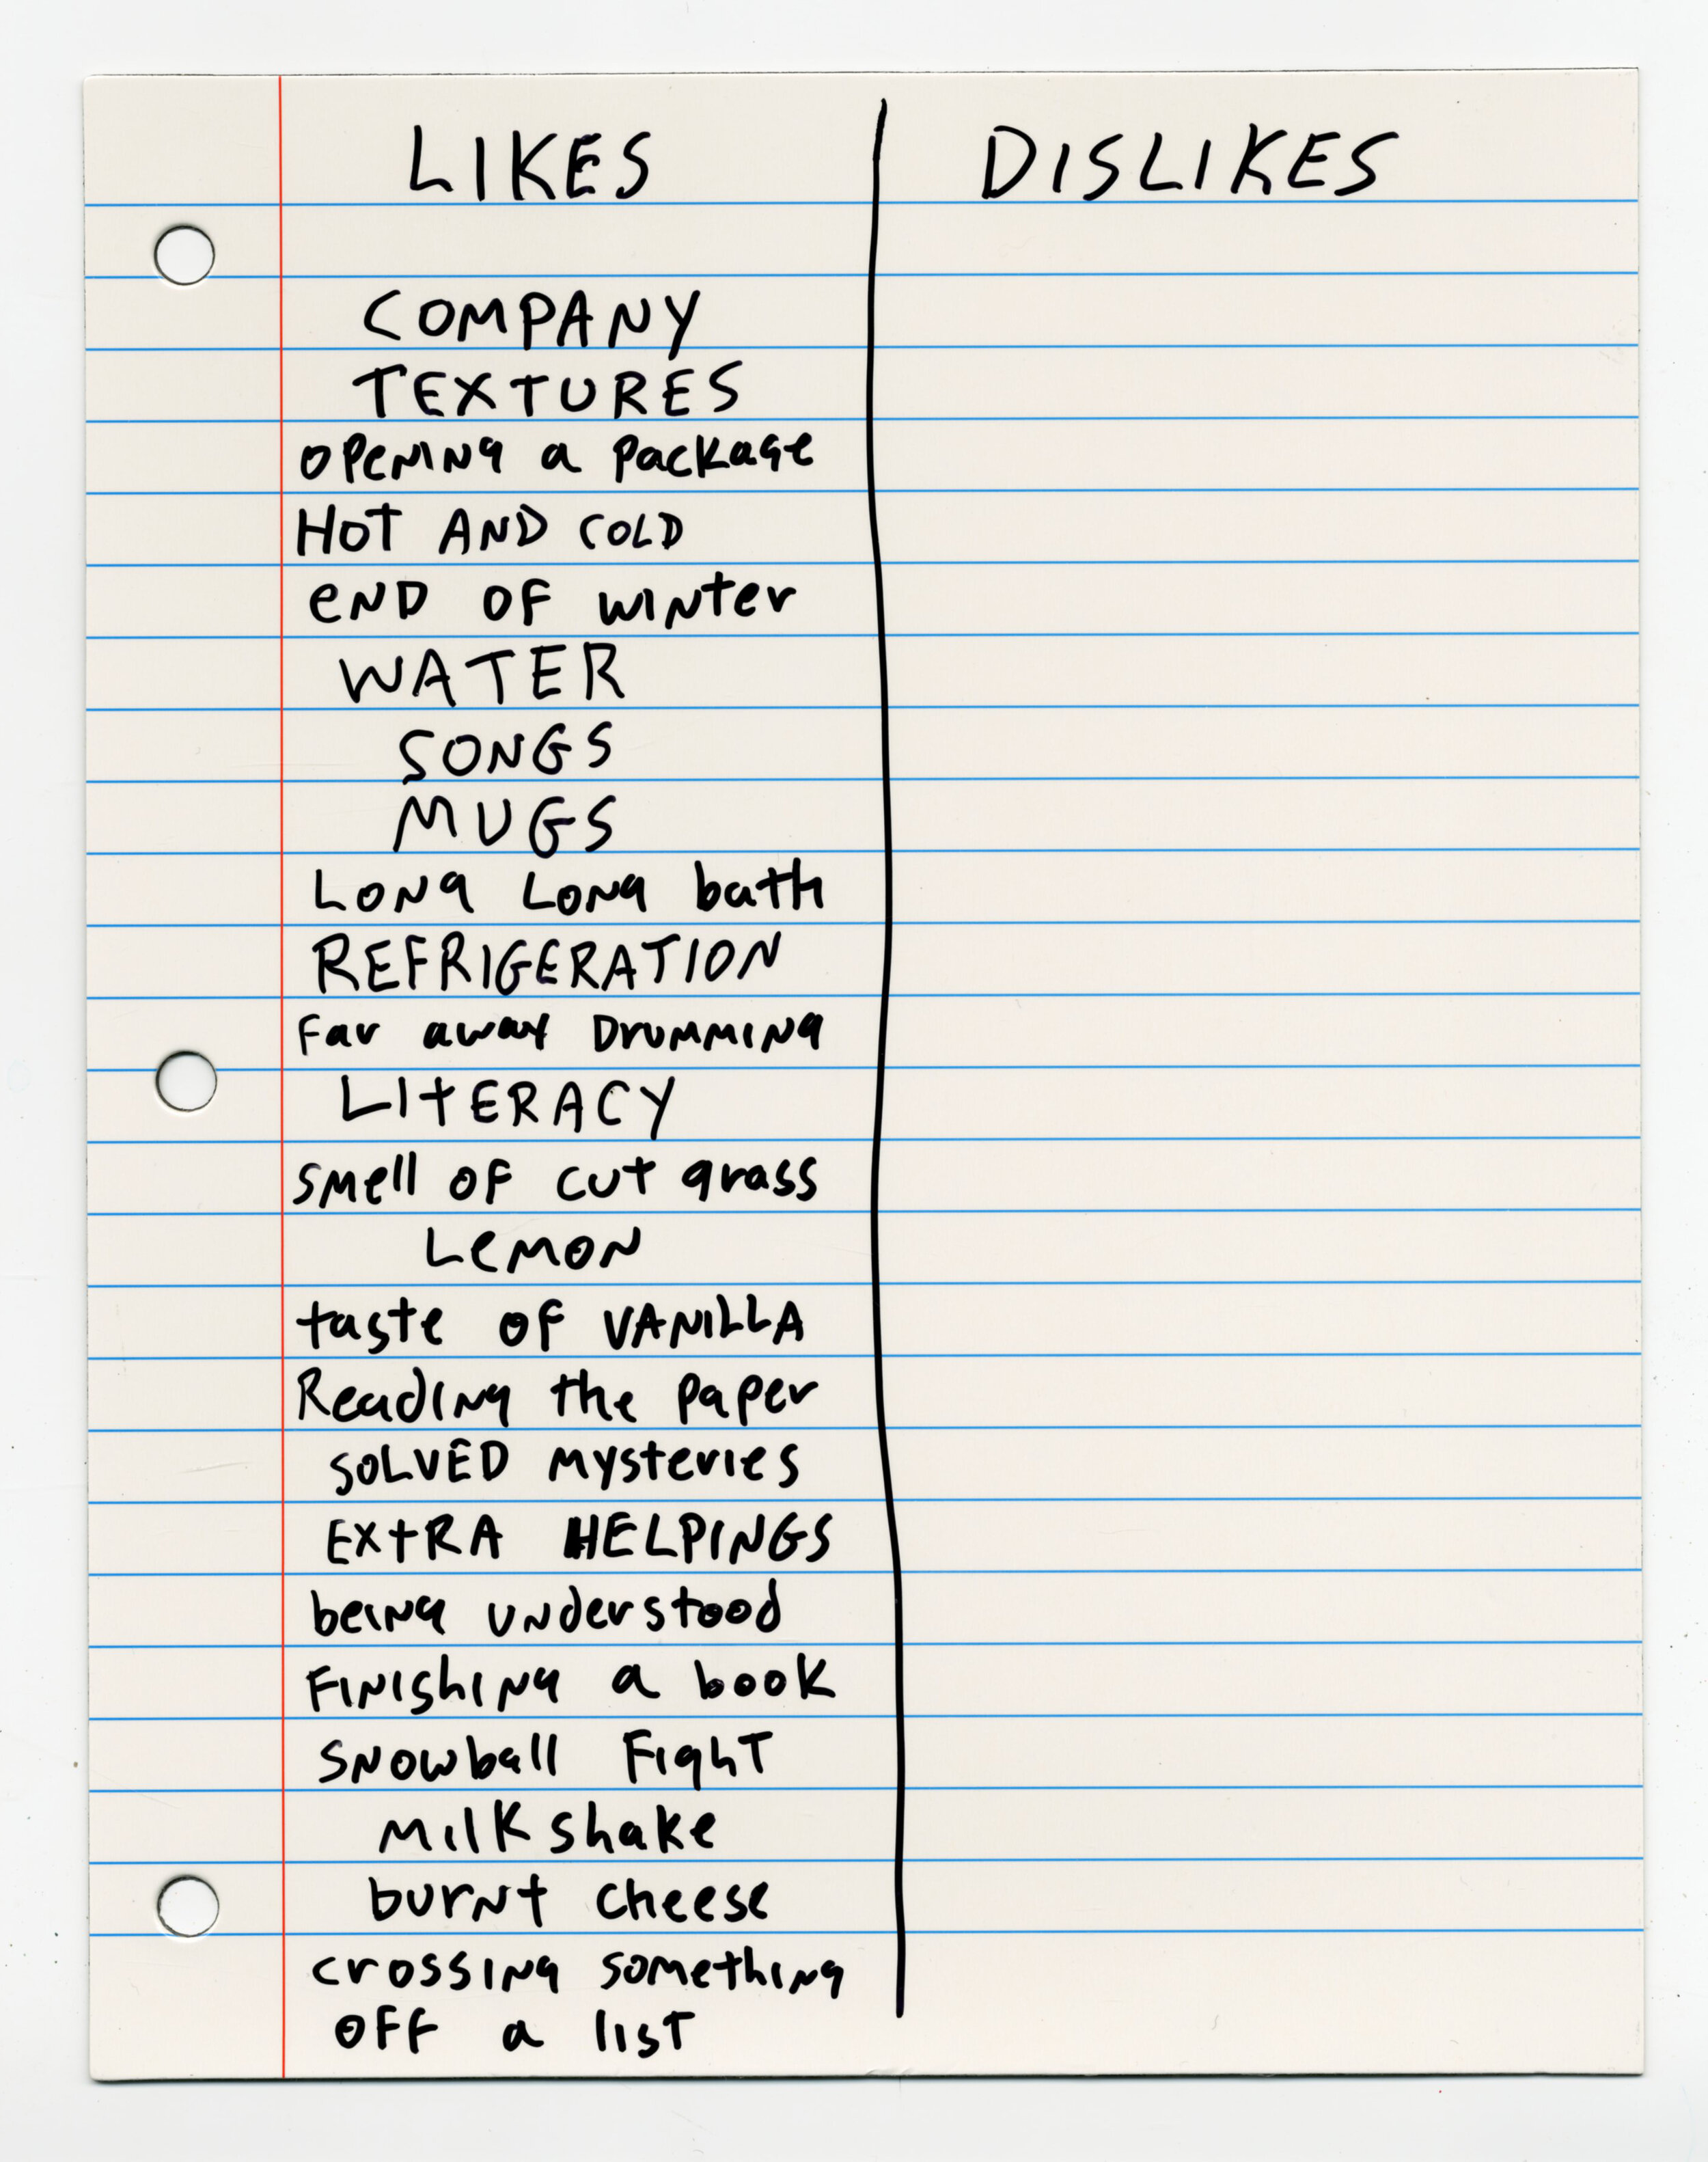 LIKES DISLIKES
COMPANY
TEXTURES
OPENING a package
HOT AND COLD
END OF WINTER
WATER
SONGS
MUGS
LONG LONG bath
REFRIGERATION
Far away Drumming
LITERACY
smell of cut grass
LEMON
taste of VANILLA
Reading the paper
SOLVED Mysteries
EXTRA HELPINGS
being understood
Finishing a book
Snowball Fight
Milkshake
burnt cheese
crossing something
off a list